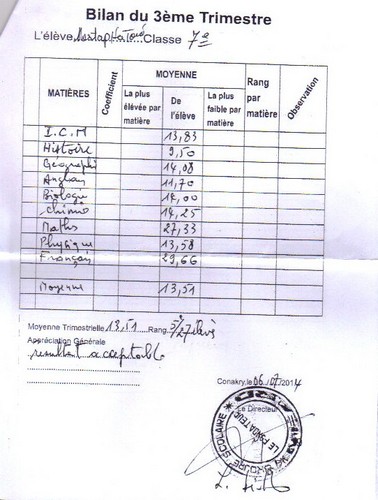 Bilan du 3ème Trimestre
L'élève Classe 7e
MATIÈRES Coefficient MOYENNE Rang par matière Observation
La plus élevée par matière De l'élève La plus faible par matière
I.C.M 13,83
Histoire 9,50
Géographi 14,08
Anglais 11,70
Biologie 14,00
chimie 14,25
Maths 27,33
Physique 13,58
Français 29,66
Moyenne 13,51
Moyenne Trimestrielle 13,51 Rang 5e/27 élèves
Appréciation Générale
resultat acceptable
Conakry, le 06/07/2014
Le Directeur
LE FONDATEUR
SCOLAIRE